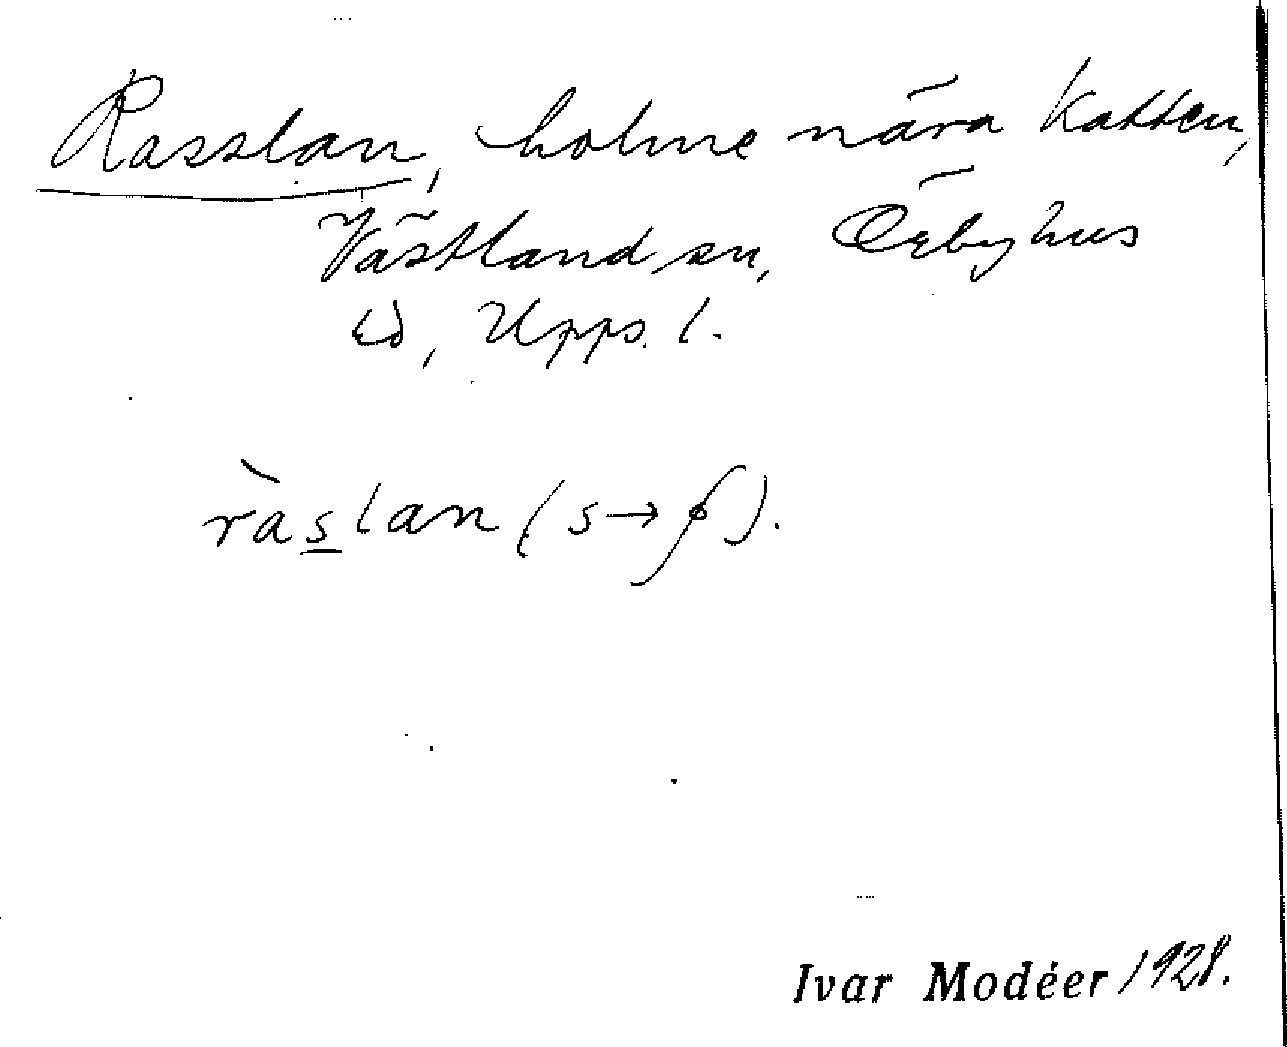 Rasslan, holme nära Katten,
Västland sn, Örbyhus
hd, Upps. l.
ràslan (s→ʃ).
Ivar Modéer 1928.